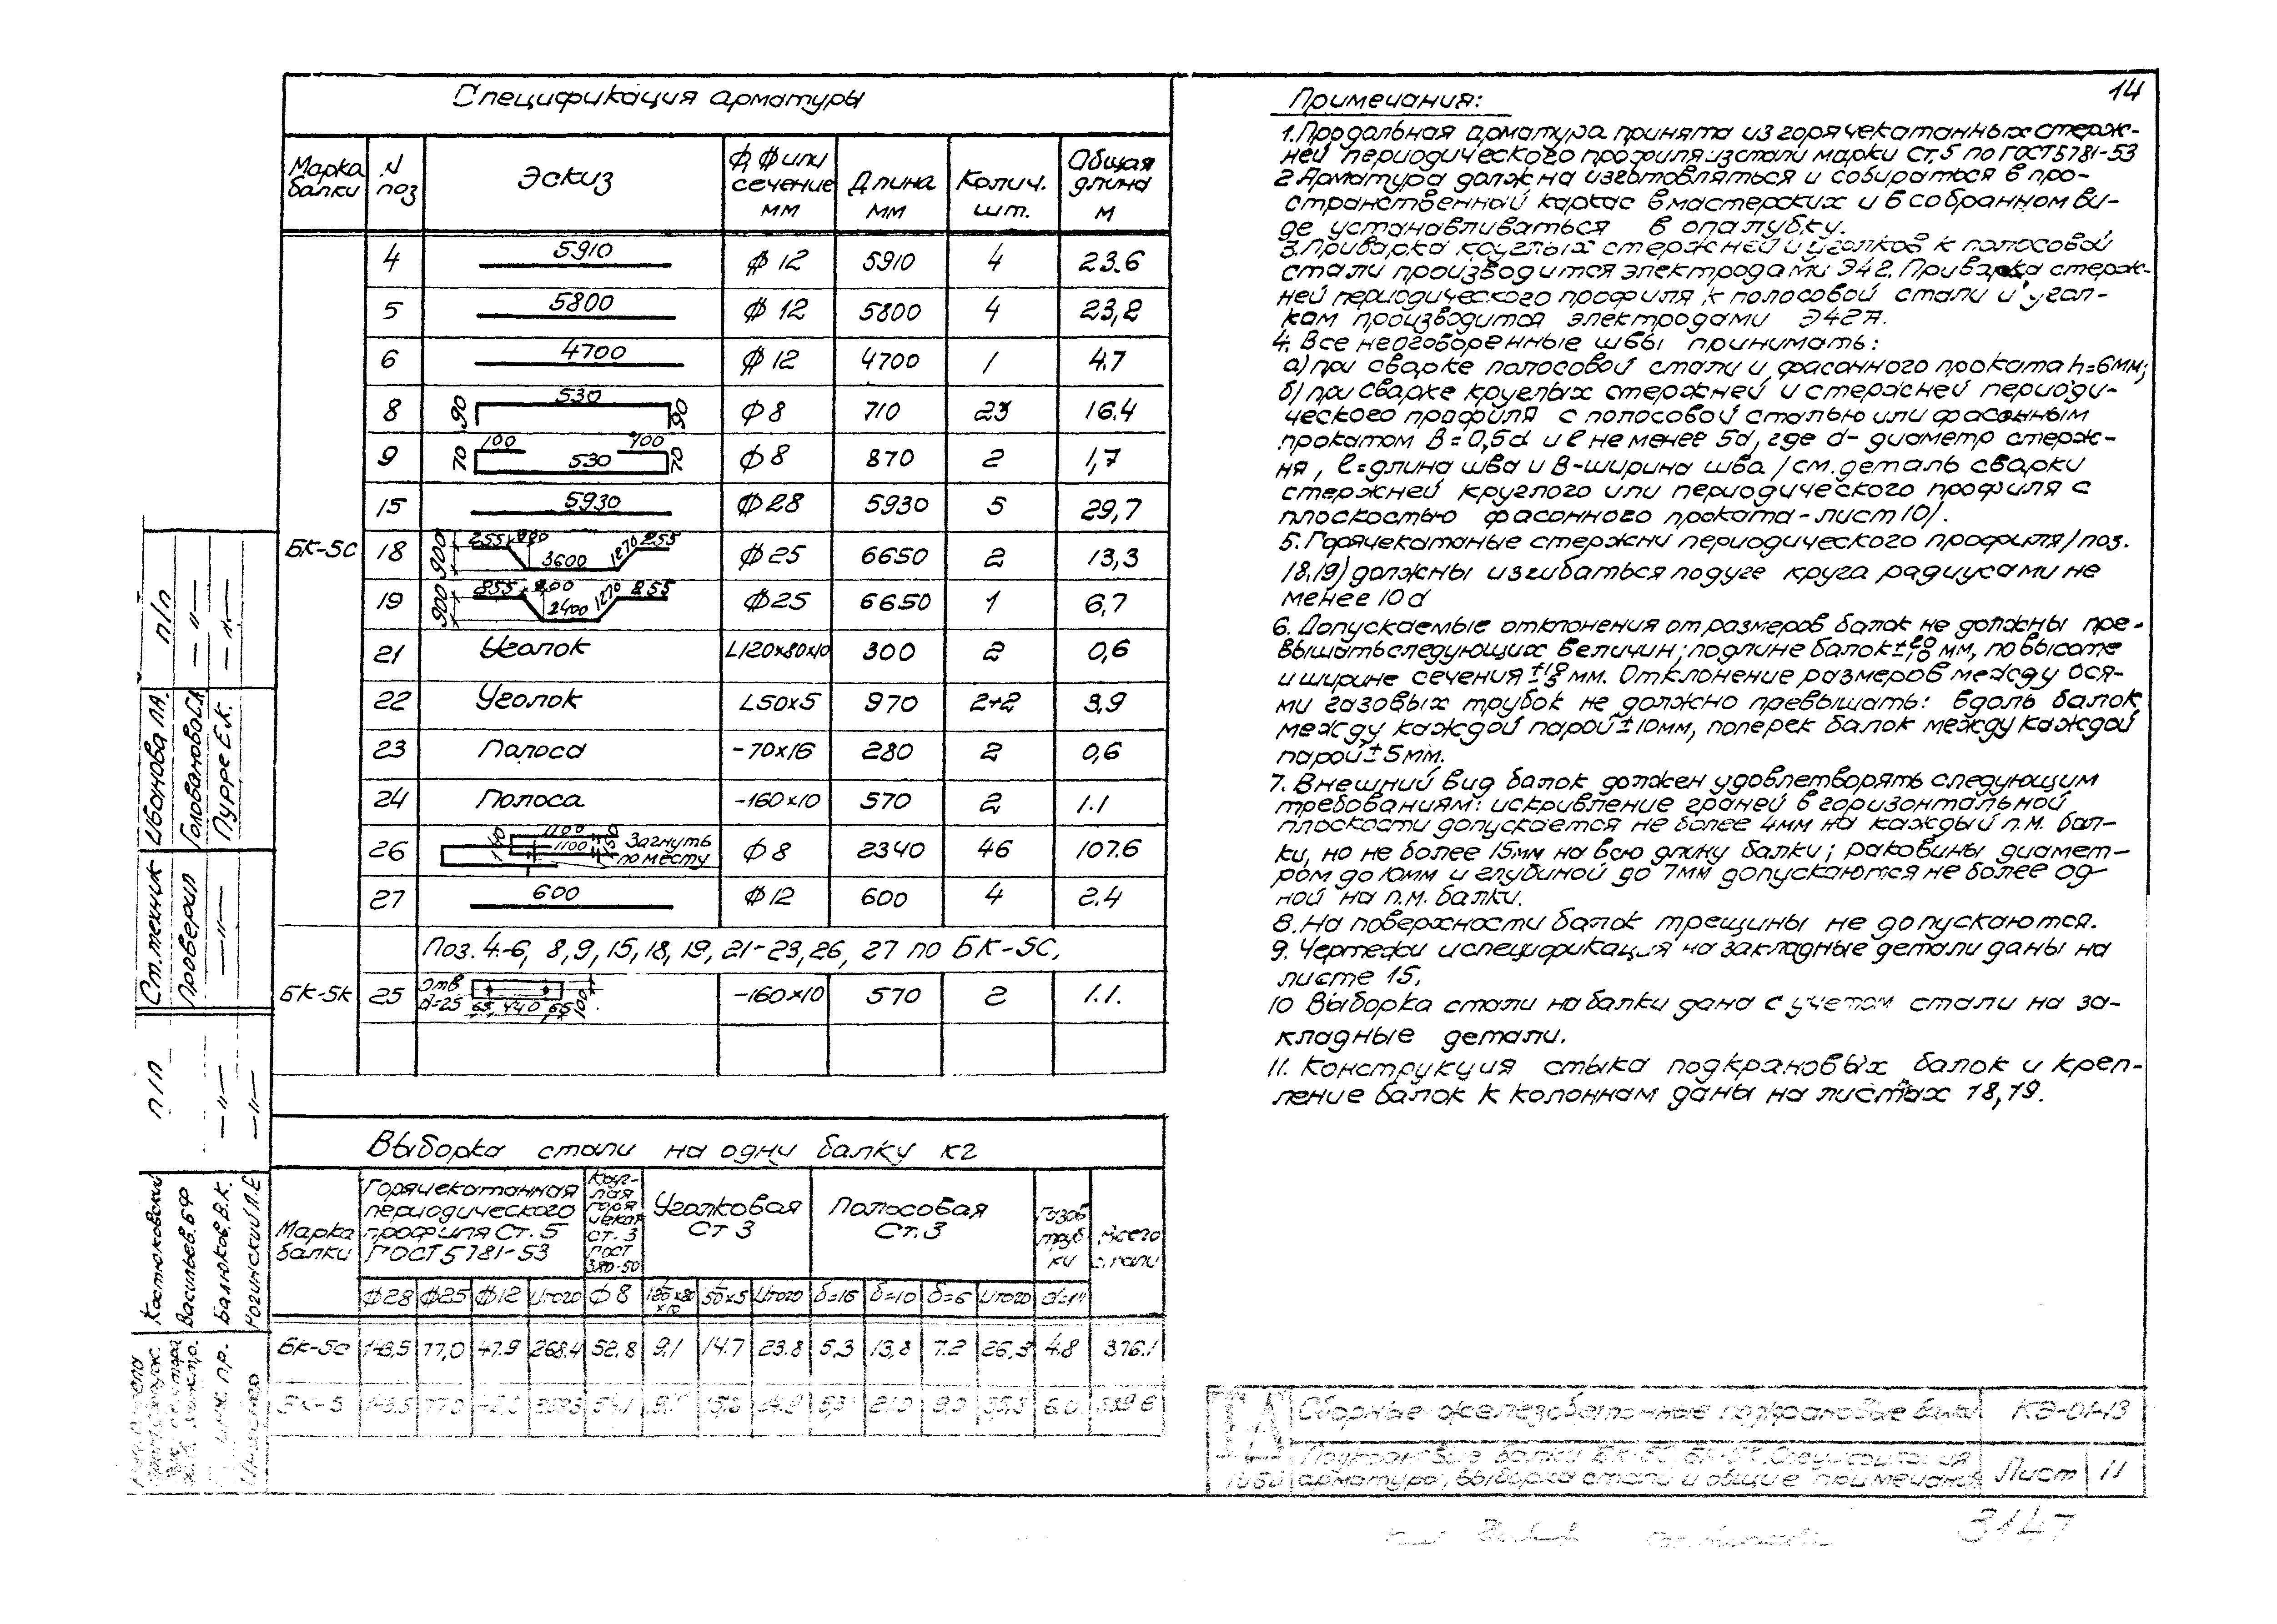 14
Спецификация арматуры
Марка балки | N поз | Эскиз | Ф, ф или сечение мм | Длина мм | Колич. шт. | Общая длина м
БК-5с
4 | 5910 | ф 12 | 5910 | 4 | 23.6
5 | 5800 | ф 12 | 5800 | 4 | 23,2
6 | 4700 | ф 12 | 4700 | 1 | 4.7
8 | 90 530 90 | ф 8 | 710 | 23 | 16.4
9 | 70 100 530 100 70 | ф 8 | 870 | 2 | 1,7
15 | 5930 | ф 28 | 5930 | 5 | 29,7
18 | 900 255 900 3600 1270 255 | ф 25 | 6650 | 2 | 13,3
19 | 900 855 900 2400 1270 855 | ф 25 | 6650 | 1 | 6,7
21 | Уголок | L120х80х10 | 300 | 2 | 0,6
22 | Уголок | L50х5 | 970 | 2+2 | 3,9
23 | Полоса | -70х16 | 280 | 2 | 0,6
24 | Полоса | -160х10 | 570 | 2 | 1.1
26 | 1100 1100 Загнуть по месту | ф 8 | 2340 | 46 | 107.6
27 | 600 | ф 12 | 600 | 4 | 2.4
Поз. 4-6, 8,9,15,18,19,21-23,26, 27 по БК-5с,
БК-5к | 25 | Отв d=25 65 440 65 100 | -160х10 | 570 | 2 | 1.1.
Выборка стали на одну балку кг
Марка балки | Горячекатанная периодического профиля Ст. 5 ГОСТ 5781-53 | Круглая горячекат. Ст. 3 ГОСТ 380-50 | Уголковая Ст 3 | Полосовая Ст.3 | Газов трубки | Всего стали
ф28 | ф25 | ф12 | Итого | ф 8 | L120х80х10 | L50х5 | Итого | δ=16 | δ=10 | δ=6 | Итого | d=1"
БК-5с | 143,5 | 77,0 | 47.9 | 268.4 | 52.8 | 9.1 | 14.7 | 23.8 | 5,3 | 13,8 | 7.2 | 26,3 | 4.8 | 376.1
Примечания:
1.Продольная арматура принята из горячекатанных стерж-
ней периодического профиля из стали марки Ст.5 по ГОСТ 5781-53
2 Арматура должна изготовляться и собираться в про-
странственный каркас в мастерских и в собранном ви-
де устанавливаться в опалубку.
3.Приварка круглых стержней и уголков к полосовой
стали производится электродами Э42. Приварка стерж-
ней периодического профиля к полосовой стали и угол-
кам производится электродами Э42А.
4. Все неоговоренные швы принимать:
а) при сварке полосовой стали и фасонного проката h=6мм;
б) при сварке круглых стержней и стержней периоди-
ческого профиля с полосовой сталью или фасонным
прокатом в=0,5d и ℓ не менее 5d, где d- диаметр стерж-
ня, ℓ=длина шва и в-ширина шва /см. деталь сварки
стержней круглого или периодического профиля с
плоскостью фасонного проката-лист 10/.
5. Горячекатаные стержни периодического профиля /поз.
18,19/ должны изгибаться по дуге круга радиусами не
менее 10d
6. Допускаемые отклонения от размеров балок не должны пре-
вышать следующих величин: по длине балок мм, по высоте
и ширине сечения мм. Отклонение размеров между ося-
ми газовых трубок не должно превышать: вдоль балок
между каждой парой ±10мм, поперек балок между каждой
парой ±5мм.
7. Внешний вид балок должен удовлетворять следующим
требованиям: искривление граней в горизонтальной
плоскости допускается не более 4мм на каждый п.м. бал-
ки, но не более 15мм на всю длину балки; раковины диамет-
ром до 10мм и глубиной до 7мм допускаются не более од-
ной на п.м. балки.
8. На поверхности балок трещины не допускаются.
9. Чертежи и спецификация на закладные детали даны на
листе 15,
10 Выборка стали на балки дана с учетом стали на за-
кладные детали.
11. Конструкция стыка подкрановых балок и креп-
ление балок к колоннам даны на листах 18,19.
ТА
Сборные железобетонные подкрановые балки | КЭ-01-13
Подкрановые балки БК-5с, БК-5к. Спецификация
арматуры, выборка стали и общие примечания | Лист | 11
3147
Ст.техник Ивонова Л.А. п/п
Проверил Голованова С.А. —"—
—"— Пурре Е.К. —"—
Костюковский п/п
Васильев.Б.Ф
инж. пр. Балюков.В.К. —"—
Ногинский Л.Е —"—